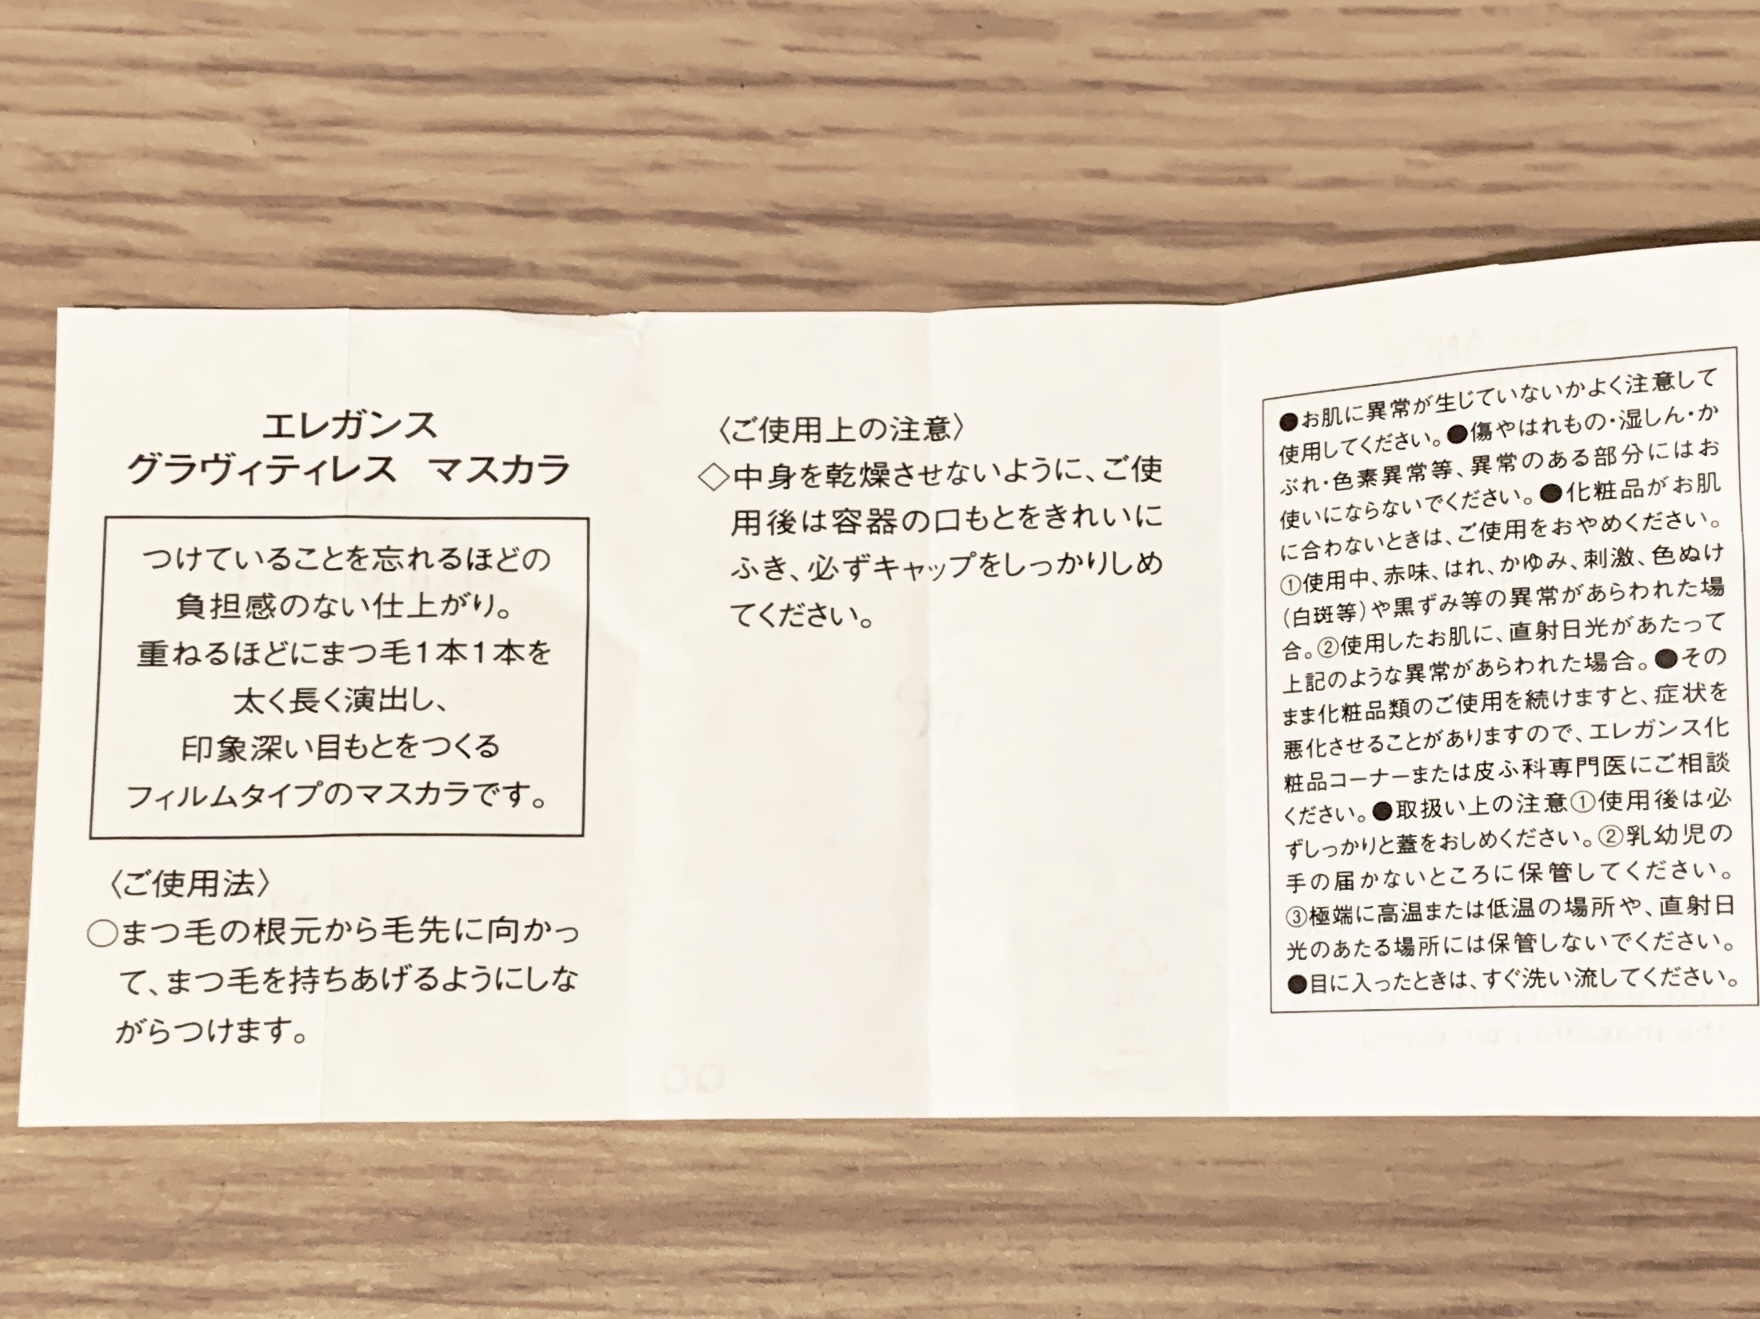 エレガンス
グラヴィティレス マスカラ
つけていることを忘れるほどの
負担感のない仕上がり。
重ねるほどにまつ毛1本1本を
太く長く演出し、
印象深い目もとをつくる
フィルムタイプのマスカラです。
〈ご使用法〉
○まつ毛の根元から毛先に向かっ
て、まつ毛を持ちあげるようにしな
がらつけます。
〈ご使用上の注意〉
◇中身を乾燥させないように、ご使
用後は容器の口もとをきれいに
ふき、必ずキャップをしっかりしめ
てください。
●お肌に異常が生じていないかよく注意して
使用してください。●傷やはれもの・湿しん・か
ぶれ・色素異常等、異常のある部分にはお
使いにならないでください。●化粧品がお肌
に合わないときは、ご使用をおやめください。
①使用中、赤味、はれ、かゆみ、刺激、色ぬけ
(白斑等)や黒ずみ等の異常があらわれた場
合。②使用したお肌に、直射日光があたって
上記のような異常があらわれた場合。●その
まま化粧品類のご使用を続けますと、症状を
悪化させることがありますので、エレガンス化
粧品コーナーまたは皮ふ科専門医にご相談
ください。●取扱い上の注意①使用後は必
ずしっかりと蓋をおしめください。②乳幼児の
手の届かないところに保管してください。
③極端に高温または低温の場所や、直射日
光のあたる場所には保管しないでください。
●目に入ったときは、すぐ洗い流してください。